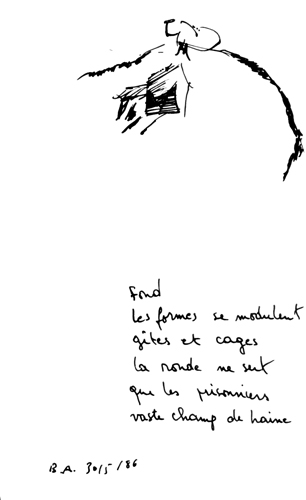 Fond
les formes se modulent
gîtes et cages
la ronde ne sert
que les prisonniers
vaste champ de haine
B.A. 30/5/86